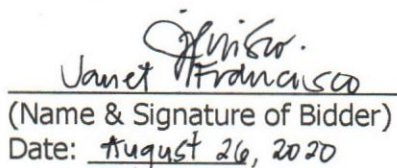 Janet Francisco
(Name & Signature of Bidder)
Date: August 26, 2020